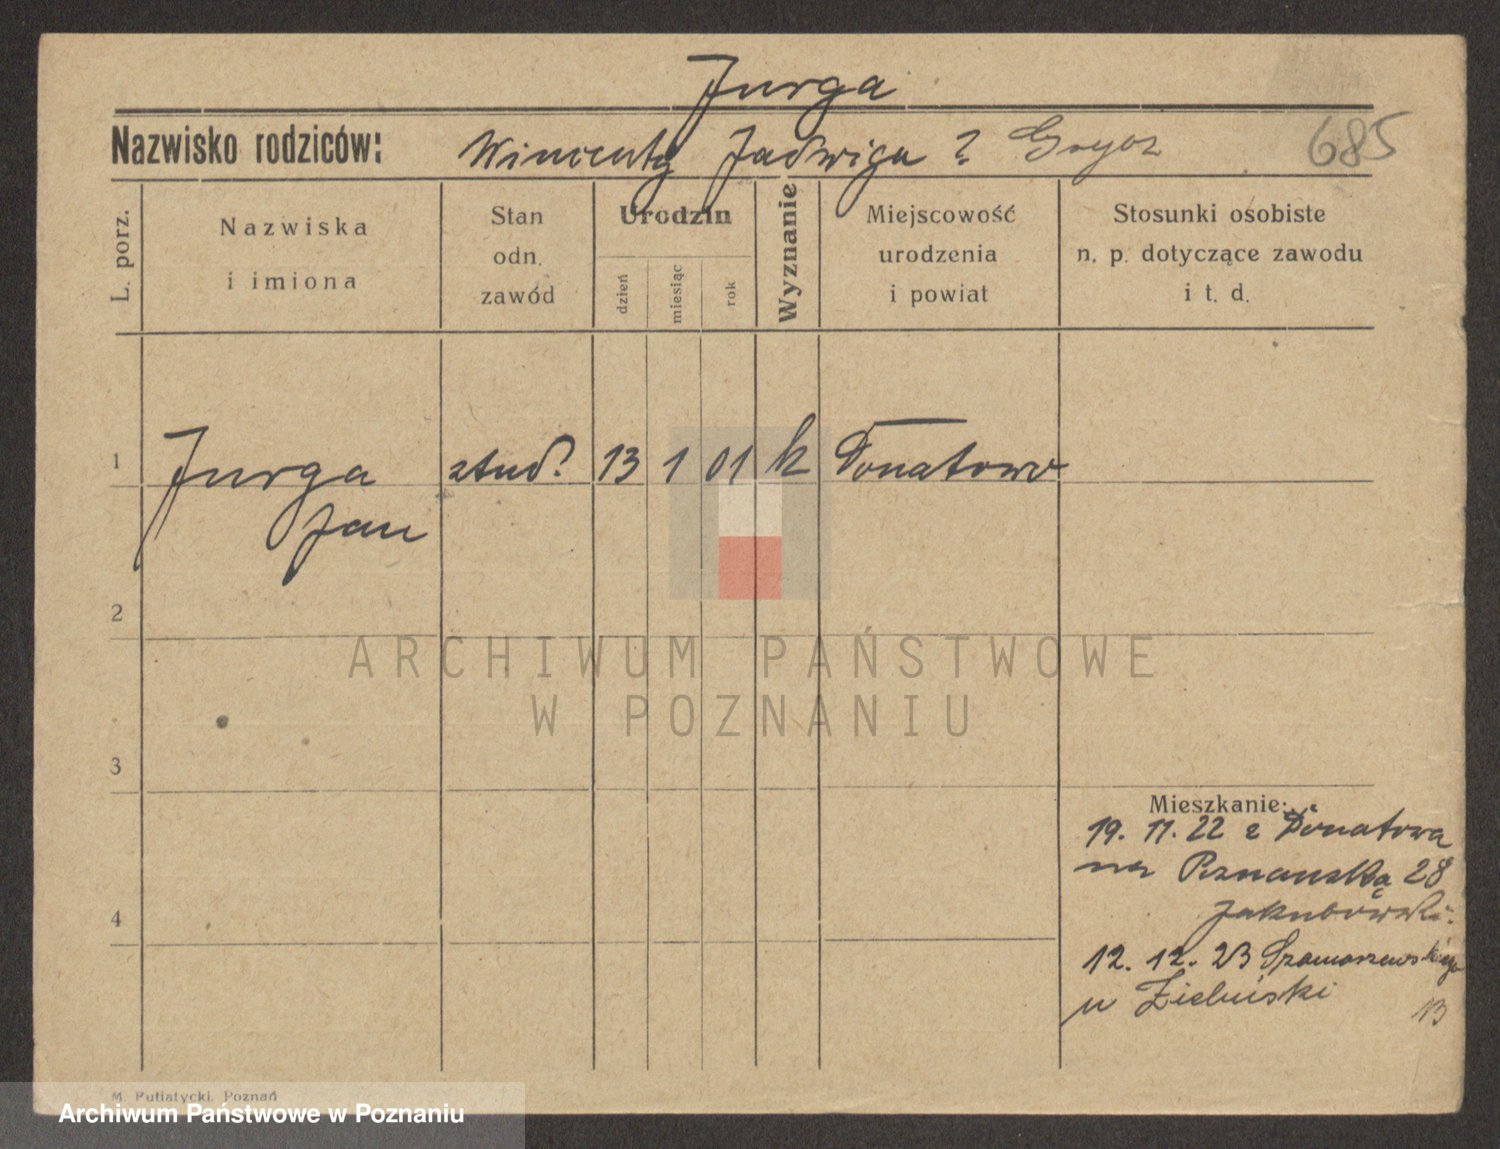 Jurga
Nazwisko rodziców: Wincenty Jadwiga z Grycz 685
L. porz.
Nazwiska i imiona
Stan odn. zawód
Urodzin
dzień miesiąc rok
Wyznanie
Miejscowość urodzenia i powiat
Stosunki osobiste n. p. dotyczące zawodu i t. d.
1 Jurga stud. 13 1 01 k Donatowo
Jan
2
ARCHIWUM PAŃSTWOWE
W POZNANIU
3
Mieszkanie:
19. 11. 22 z Donatowa
na Poznańską 28
Jakubowski.
4
12. 12. 23 Szamarzewskiego
u Zieliński 13
M. Putiatycki, Poznań
Archiwum Państwowe w Poznaniu